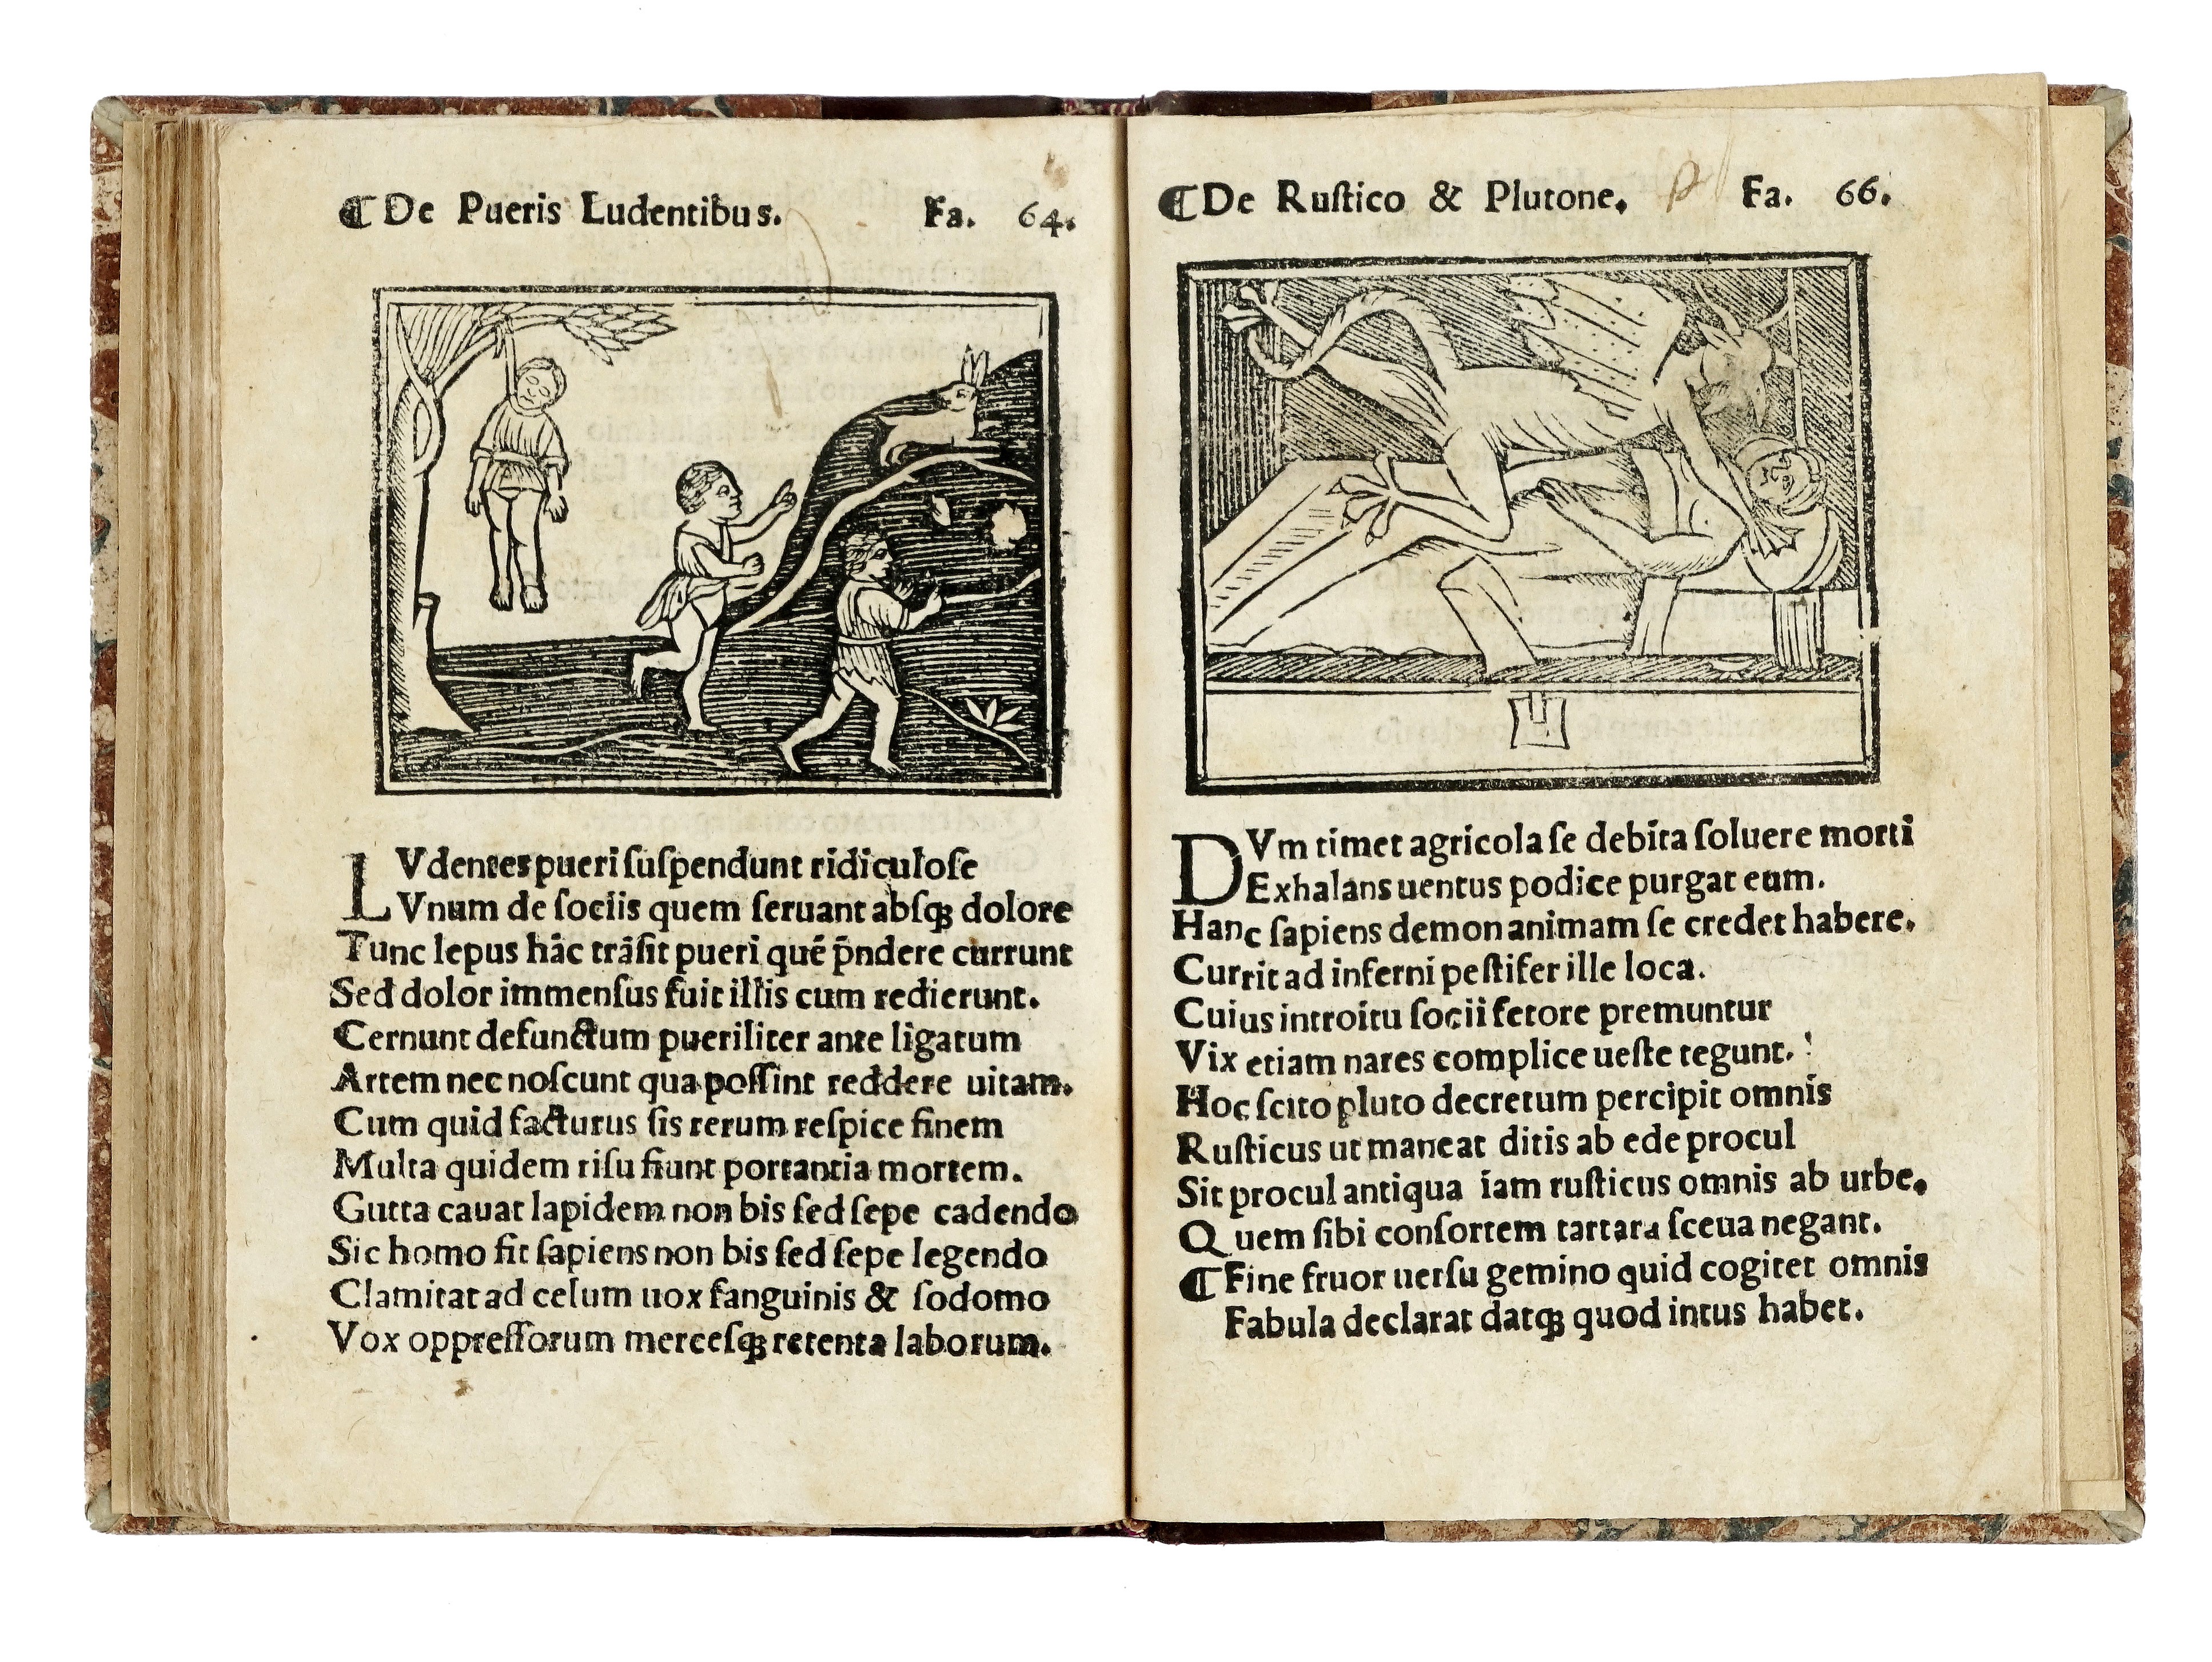 ¶ De Pueris Ludentibus. Fa. 64.
LVdentes pueri ſuſpendunt ridiculoſe
Vnum de ſociis quem ſeruant abſqꝫ dolore
Tunc lepus hâc trãſit pueri quẽ p̃ndere currunt
Sed dolor immenſus fuit illis cum redierunt.
Cernunt defunctum pueriliter ante ligatum
Artem nec noſcunt qua poſſint reddere uitam.
Cum quid facturus ſis rerum reſpice finem
Multa quidem riſu fiunt portantia mortem.
Gutta cauat lapidem non bis ſed ſepe cadendo
Sic homo fit ſapiens non bis ſed ſepe legendo
Clamitat ad celum uox ſanguinis & ſodomo
Vox oppreſſorum merceſqꝫ retenta laborum.
¶ De Ruſtico & Plutone. Fa. 66.
DVm timet agricola ſe debita ſoluere morti
Exhalans uentus podice purgat eum.
Hanc ſapiens demon animam ſe credet habere.
Currit ad inferni peſtifer ille loca.
Cuius introitu ſocii fetore premuntur
Vix etiam nares complice ueſte tegunt.
Hoc ſcito pluto decretum percipit omnis
Ruſticus ut maneat ditis ab ede procul
Sit procul antiqua iam ruſticus omnis ab urbe.
Quem ſibi conſortem tartara ſceua negant.
¶ Fine fruor uerſu gemino quid cogitet omnis
Fabula declarat datqꝫ quod intus habet.